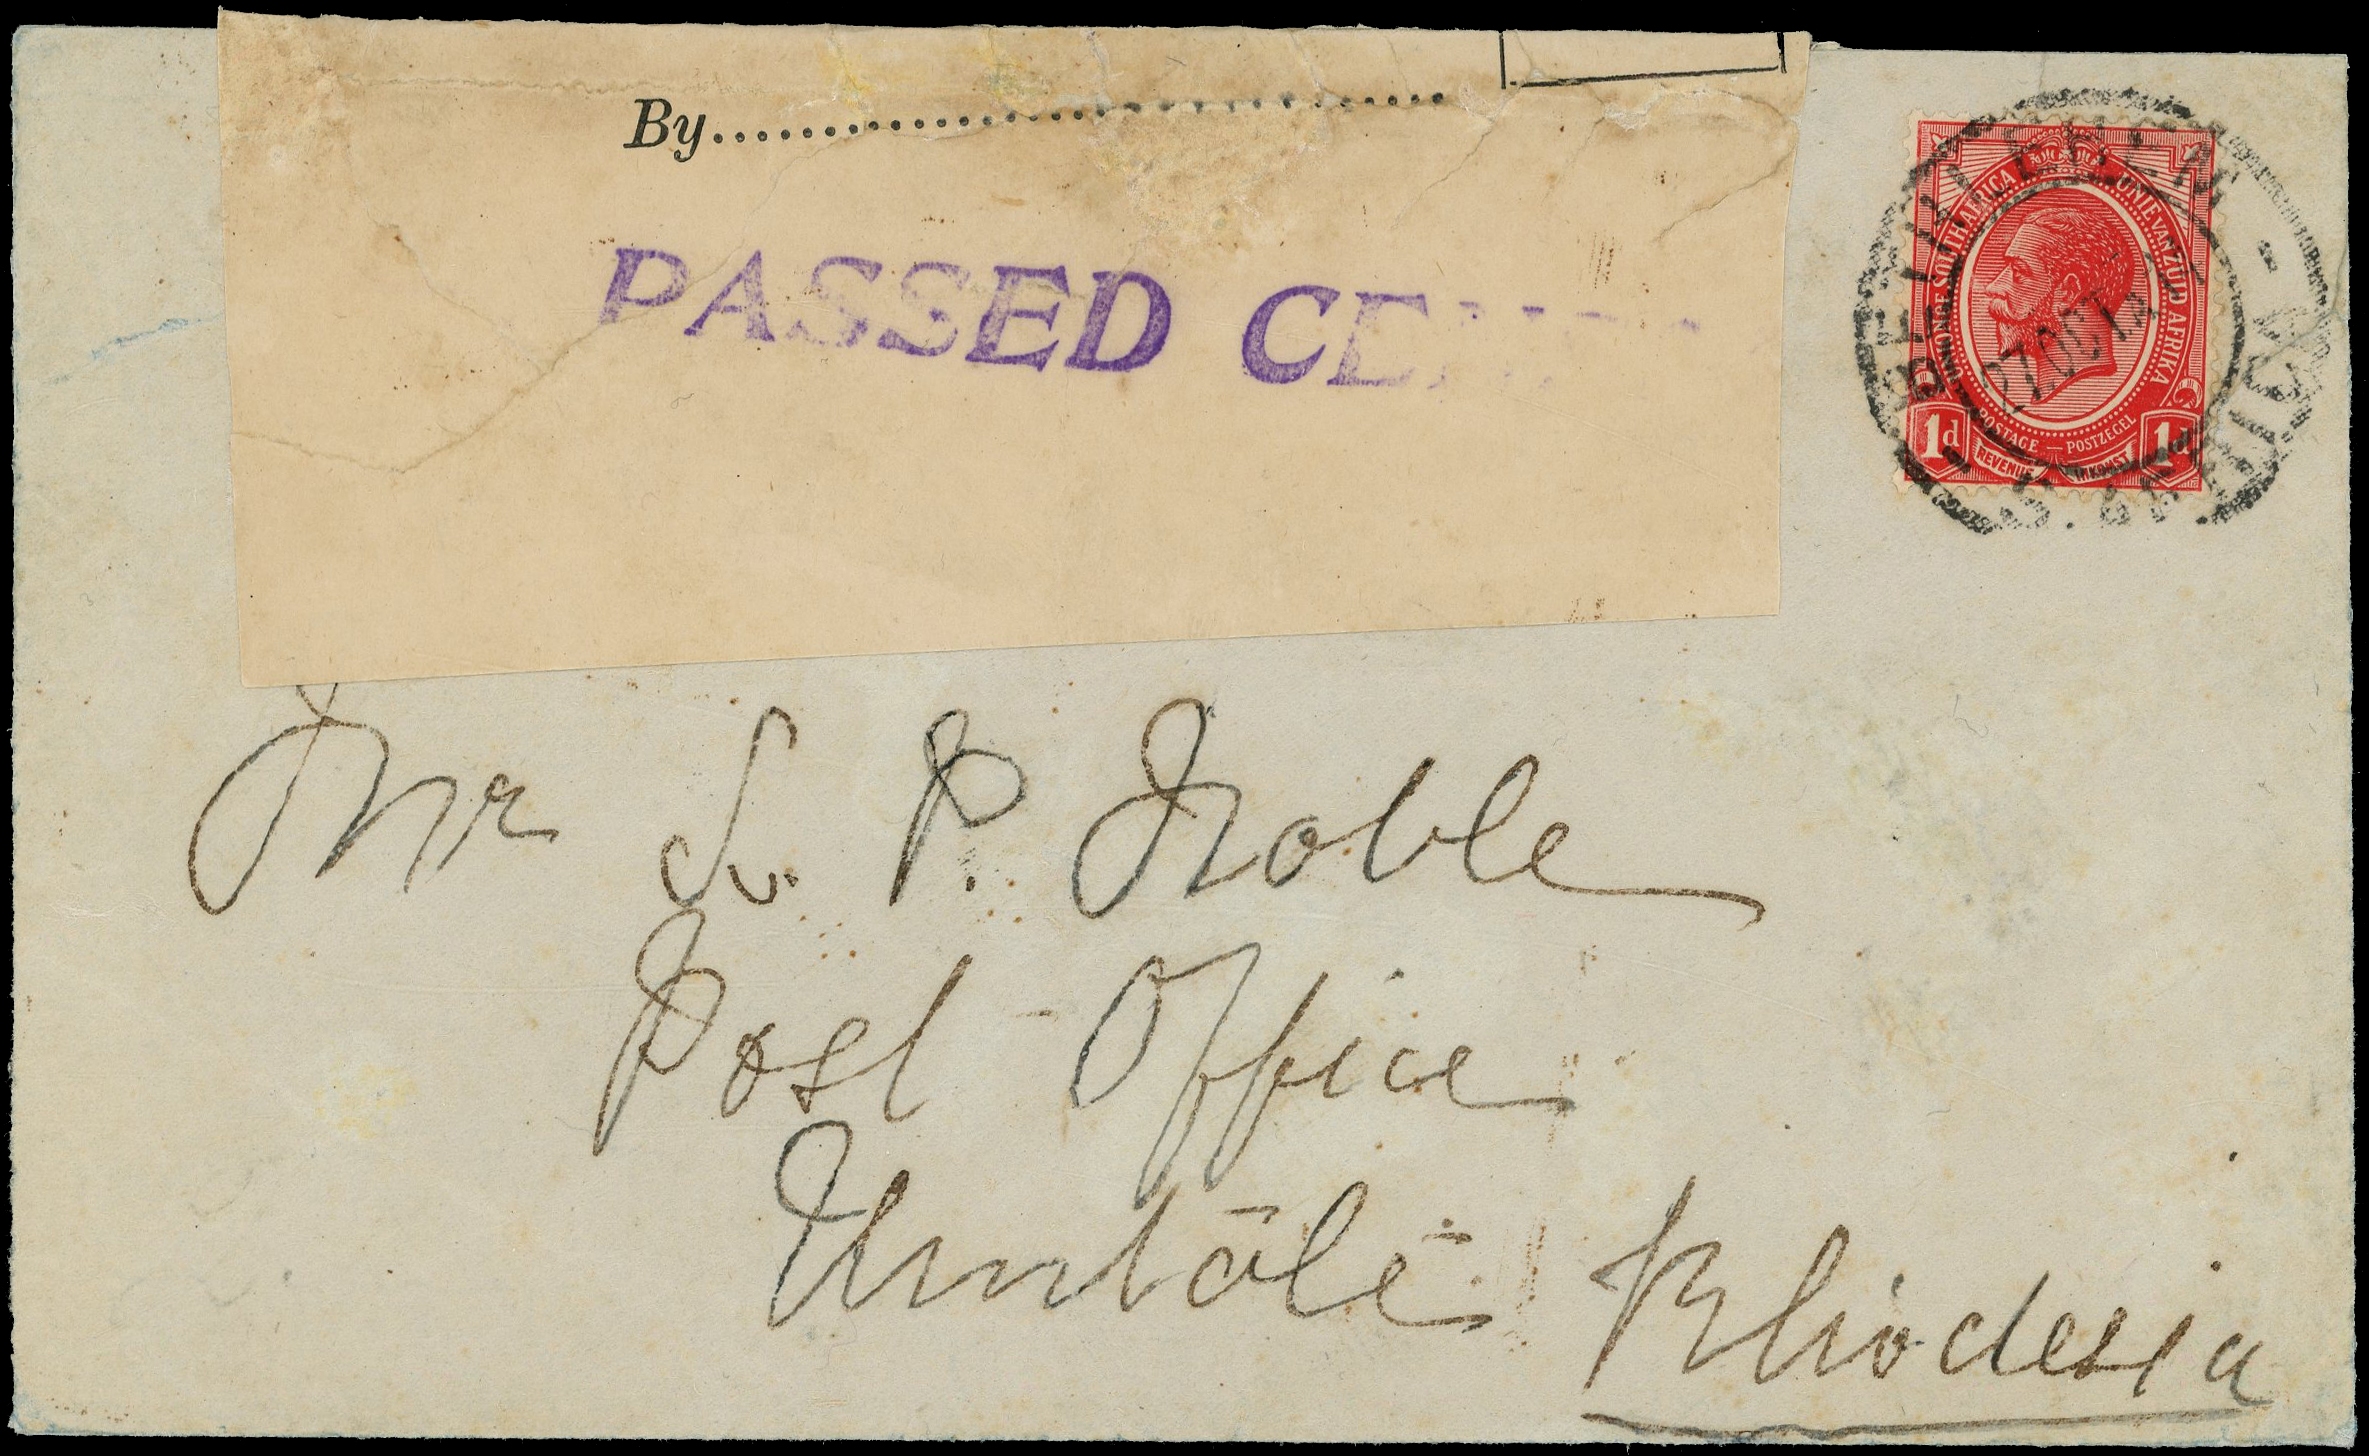 By................................
PASSED CEN
UNIE VAN ZUID AFRIKA
UNION OF SOUTH AFRICA
BETHLEHEM
27 OCT 14
POSTAGE — POSTZEGEL
1d REVENUE INKOMST 1d
Mr S. P. Noble
Post Office
Umtali
Rhodesia